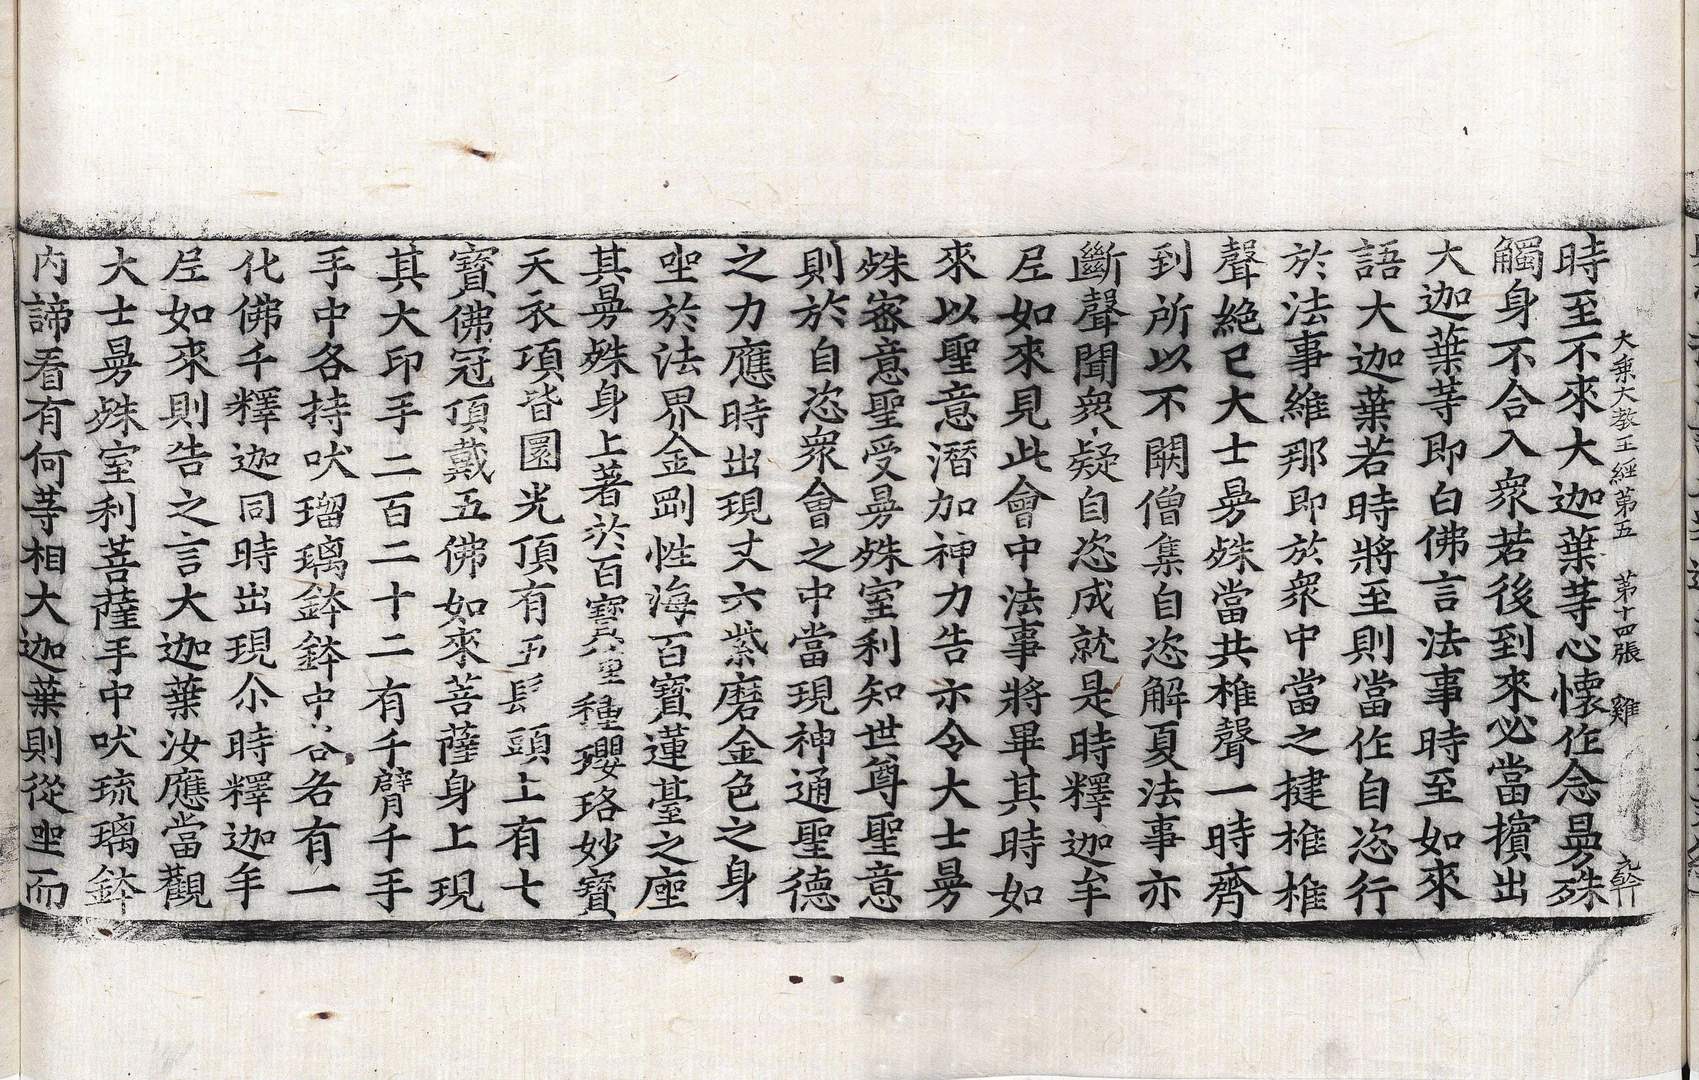 大乘大教王經第五 第十四張 雞 元幹
時至不來大迦葉䓁心懷作念曼殊
觸身不合入衆若後到來必當擯出
大迦葉䓁即白佛言法事時至如來
語大迦葉若時將至則當作自恣行
於法事維那即於衆中當之揵椎椎
聲絶已大士曼殊當共椎聲一時齊
到所以不闕僧集自恣解夏法事亦
斷聲聞衆疑自恣成就是時釋迦牟
尼如來見此會中法事將畢其時如
來以聖意潛加神力告示令大士曼
殊密意聖受曼殊室利知世尊聖意
則於自恣衆會之中當現神通聖德
之力應時出現丈六紫磨金色之身
坐於法界金剛性海百寶蓮臺之座
其曼殊身上著於百寶種種瓔珞妙寶
天衣項皆圓光頂有五髻頭上有七
寶佛冠頂戴五佛如來菩薩身上現
其大印手二百二十二有千臂千手
手中各持吠瑠璃鉢鉢中各各有一
化佛千釋迦同時出現尒時釋迦牟
尼如來則告之言大迦葉汝應當觀
大士曼殊室利菩薩手中吠琉璃鉢
内諦看有何䓁相大迦葉則從坐而